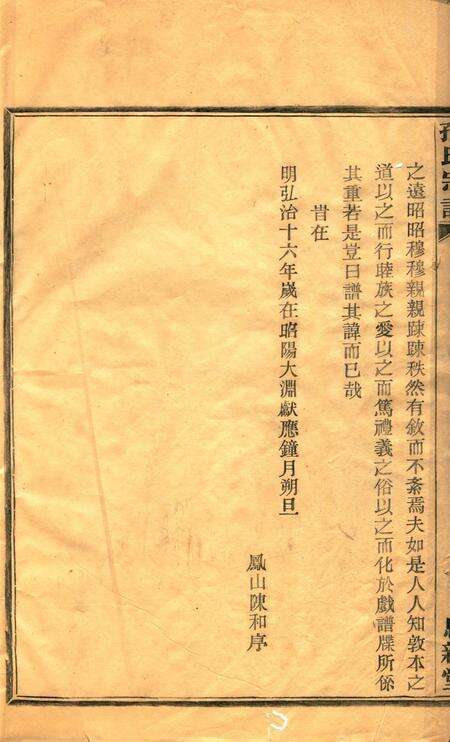 孫氏宗譜
之遠昭昭穆穆親親踈踈秩然有敘而不紊焉夫如是人人知敦本之
道以之而行睦族之愛以之而篤禮義之俗以之而化於戲譜牒所係
其重若是豈曰譜其諱而已哉
旹在
明弘治十六年嵗在昭陽大淵獻應鐘月朔旦
鳳山陳和序